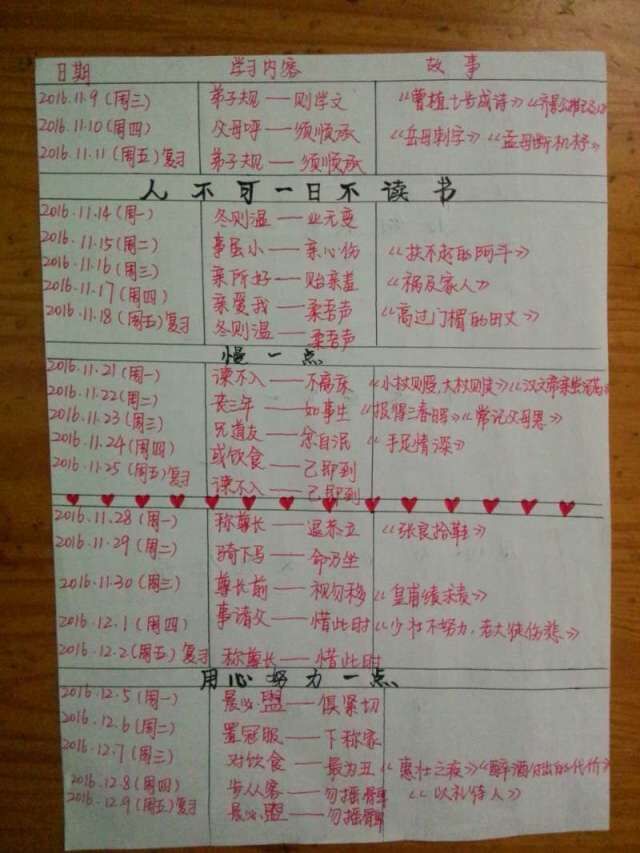 日期 学习内容 故事
2016.11.9(周三) 弟子规——则学文 《曹植七步成诗》
2016.11.10(周四) 父母呼——须顺承 《岳母刺字》《孟母断机杼》
2016.11.11(周五)复习 弟子规——须顺承
人不可一日不读书
2016.11.14(周一) 冬则温——业无变
2016.11.15(周二) 事虽小——亲心伤 《扶不起的阿斗》
2016.11.16(周三) 亲所好——贻亲羞 《祸及家人》
2016.11.17(周四) 亲爱我——柔吾声 《高过门楣的田文》
2016.11.18(周五)复习 冬则温——柔吾声
慢一点
2016.11.21(周一) 谏不入——不离床 《小杖则受,大杖则走》
2016.11.22(周二) 丧三年——如事生 《报得三春晖》《常记父母恩》
2016.11.23(周三) 兄道友——忿自泯 《手足情深》
2016.11.24(周四) 或饮食——己即到
2016.11.25(周五)复习 谏不入——己即到
2016.11.28(周一) 称尊长——退恭立 《张良拾鞋》
2016.11.29(周二) 骑下马——命乃坐
2016.11.30(周三) 尊长前——视勿移 《皇甫绩求责》
2016.12.1(周四) 事诸父——惜此时 《少壮不努力,老大徒伤悲》
2016.12.2(周五)复习 称尊长——惜此时
用心努力一点
2016.12.5(周一) 晨必盥——俱紧切
2016.12.6(周二) 置冠服——下称家
2016.12.7(周三) 对饮食——最为丑 《醉酒付出的代价》
2016.12.8(周四) 步从容——勿摇髀 《以礼待人》
2016.12.9(周五)复习 晨必盥——勿摇髀